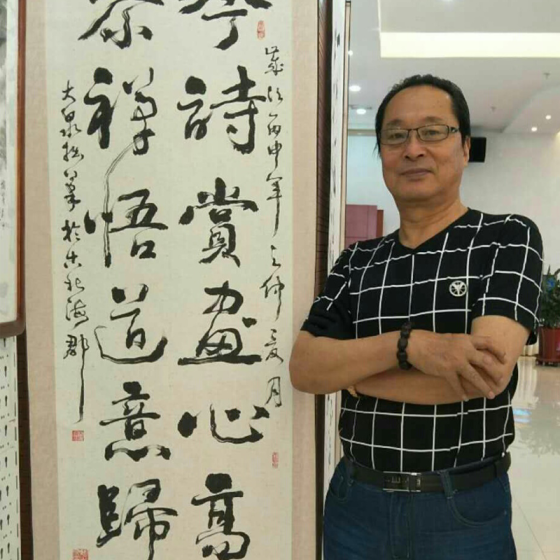 歲次丙申年之仲夏月
詩賞畫心高
禪悟道意歸
大泉拙筆於古北海郡